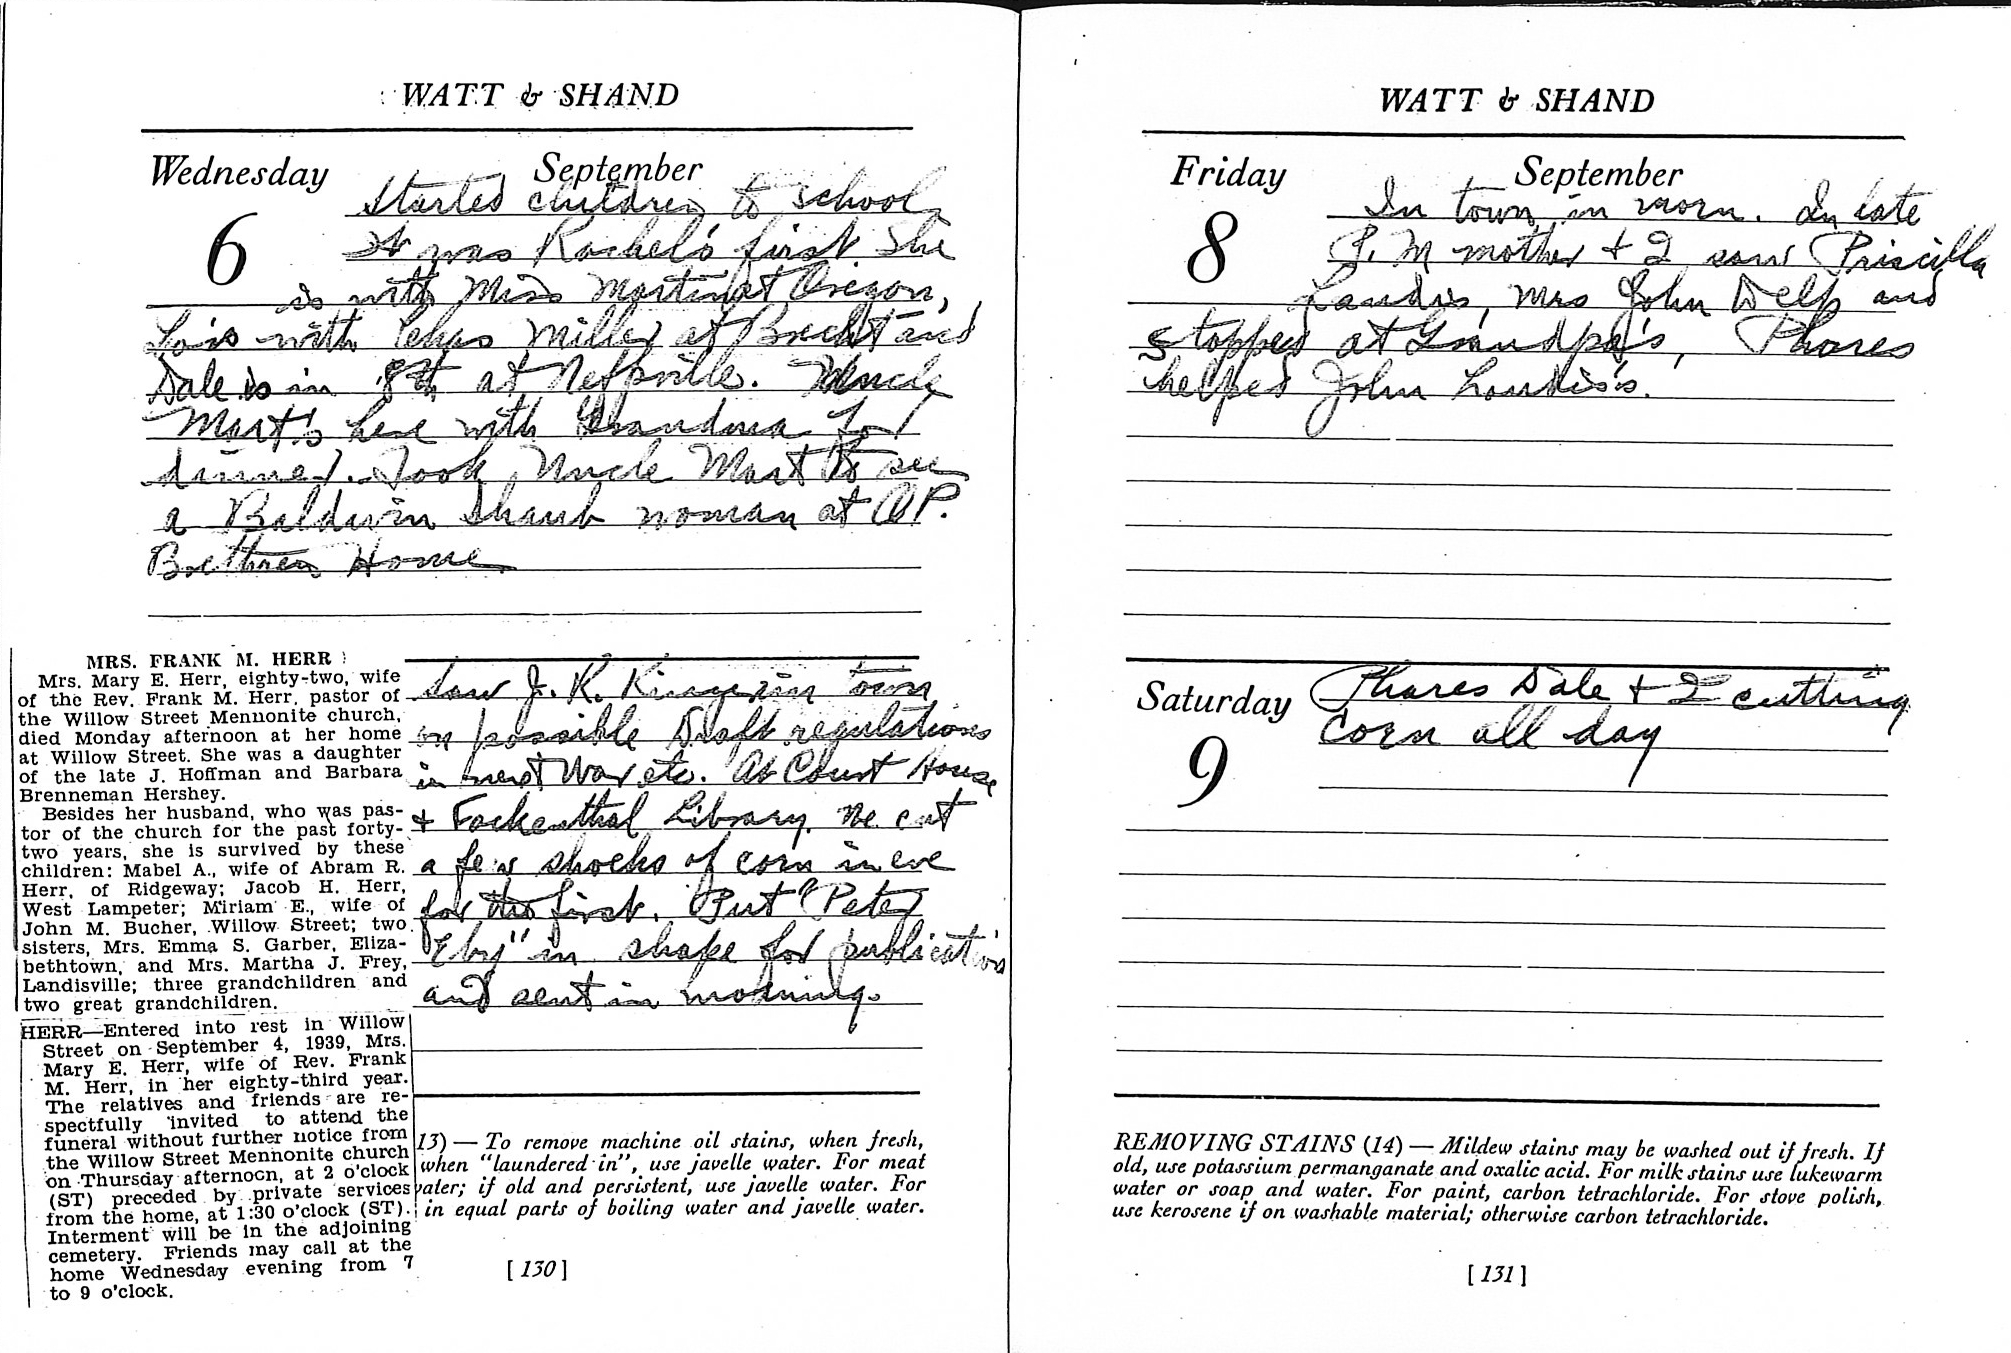 WATT & SHAND
Wednesday September
6
Started children to school
It was Rachel's first. She
is with Miss Martin at Oregon,
Lois with Chas Miller at Brecht and
Dale is in 8th at Neffsville. Uncle
Mart's here with Grandma for
dinner. Took Uncle Mart to see
a Baldwin Shaub woman at
Brethren Home
MRS. FRANK M. HERR
Mrs. Mary E. Herr, eighty-two, wife
of the Rev. Frank M. Herr, pastor of
the Willow Street Mennonite church,
died Monday afternoon at her home
at Willow Street. She was a daughter
of the late J. Hoffman and Barbara
Brenneman Hershey.
Besides her husband, who was pas-
tor of the church for the past forty-
two years, she is survived by these
children: Mabel A., wife of Abram R.
Herr, of Ridgeway; Jacob H. Herr,
West Lampeter; Miriam E., wife of
John M. Bucher, Willow Street; two
sisters, Mrs. Emma S. Garber, Eliza-
bethtown, and Mrs. Martha J. Frey,
Landisville; three grandchildren and
two great grandchildren.
HERR—Entered into rest in Willow
Street on September 4, 1939, Mrs.
Mary E. Herr, wife of Rev. Frank
M. Herr, in her eighty-third year.
The relatives and friends are re-
spectfully invited to attend the
funeral without further notice from
the Willow Street Mennonite church
on Thursday afternoon, at 2 o'clock
(ST) preceded by private services
from the home, at 1:30 o'clock (ST).
Interment will be in the adjoining
cemetery. Friends may call at the
home Wednesday evening from 7
to 9 o'clock.
Saw J. K. in town
on possible Draft regulations
in next War etc. At Court House
+ Fackenthal Library. We cut
a few shocks of corn in eve
for the first. Put "Peter
Eby" in shape for publication
and sent in morning.
13) — To remove machine oil stains, when fresh,
when "laundered in", use javelle water. For meat
water; if old and persistent, use javelle water. For
in equal parts of boiling water and javelle water.
[130]
WATT & SHAND
Friday September
8
In town in morn. In late
P.M mother + I saw Priscilla
Landis, Mrs John Delp and
stopped at Grandpa's, Phares
helped John Landis's.
Saturday
9
Phares Dale + I cutting
corn all day
REMOVING STAINS (14) — Mildew stains may be washed out if fresh. If
old, use potassium permanganate and oxalic acid. For milk stains use lukewarm
water or soap and water. For paint, carbon tetrachloride. For stove polish,
use kerosene if on washable material; otherwise carbon tetrachloride.
[131]